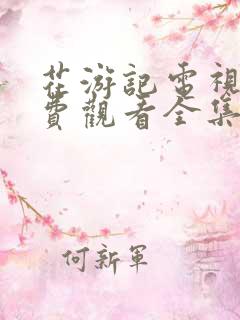 茌游記電視
費觀看全集
何新軍